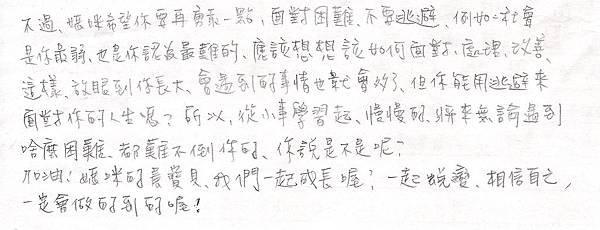 不過、媽咪希望你要再勇敢一點，面對困難、不要逃避、例如：社會
是你最弱、也是你認為最難的、應該想想該如何面對、處理、改善、
這樣、放眼到你長大、會遇到的事情也就會多了、但你能用逃避來
面對你的人生嗎？所以，從小事學習起、慢慢的、將來無論遇到
啥麼困難、都難不倒你的、你說是不是呢？
加油！媽咪的寶貝、我們一起成長喔！一起蛻變、相信自己，
一定會做的到的喔！